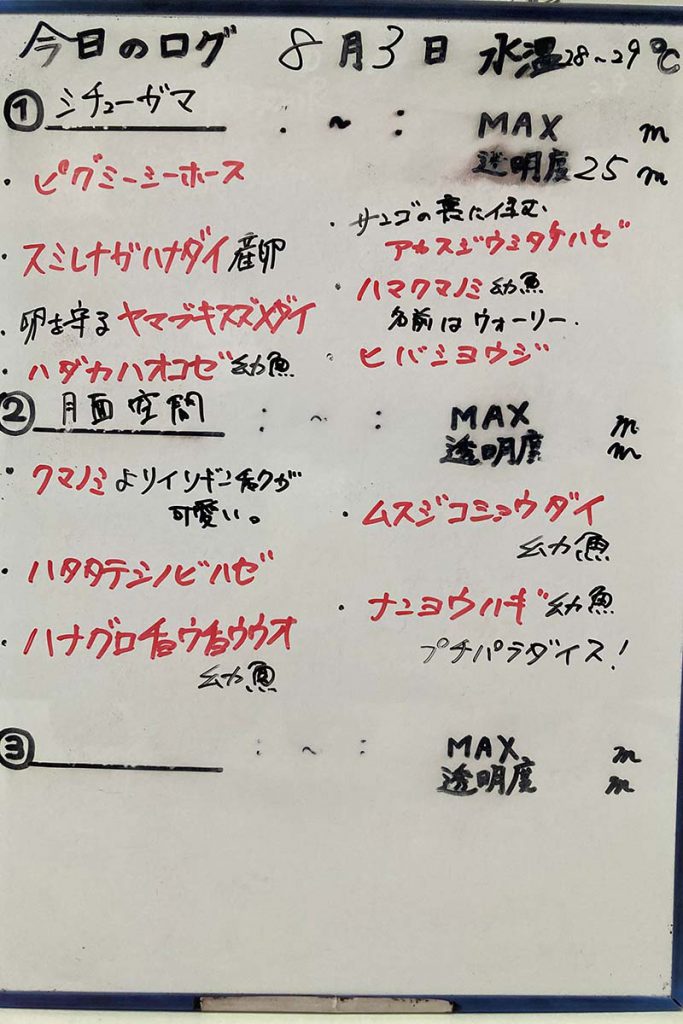 今日のログ 8月3日 水温28~29℃
① シチューガマ : ~ : MAX m
透明度25m
・ピグミーシーホース
・スミレナガハナダイ産卵
・卵を守るヤマブキスズメダイ
・ハダカハオコゼ幼魚
・サンゴの裏に住む
アカスジウミタケハゼ
・ハマクマノミ幼魚
名前はウォーリー.
・ヒバシヨウジ
② 月面空間 : ~ : MAX m
透明度 m
・クマノミよりイソギンチャクが
可愛い。
・ハタタテシノビハゼ
・ハナグロチョウチョウウオ
幼魚
・ムスジコショウダイ
幼魚
・ナンヨウハギ幼魚
プチパラダイス!
③ : ~ : MAX m
透明度 m